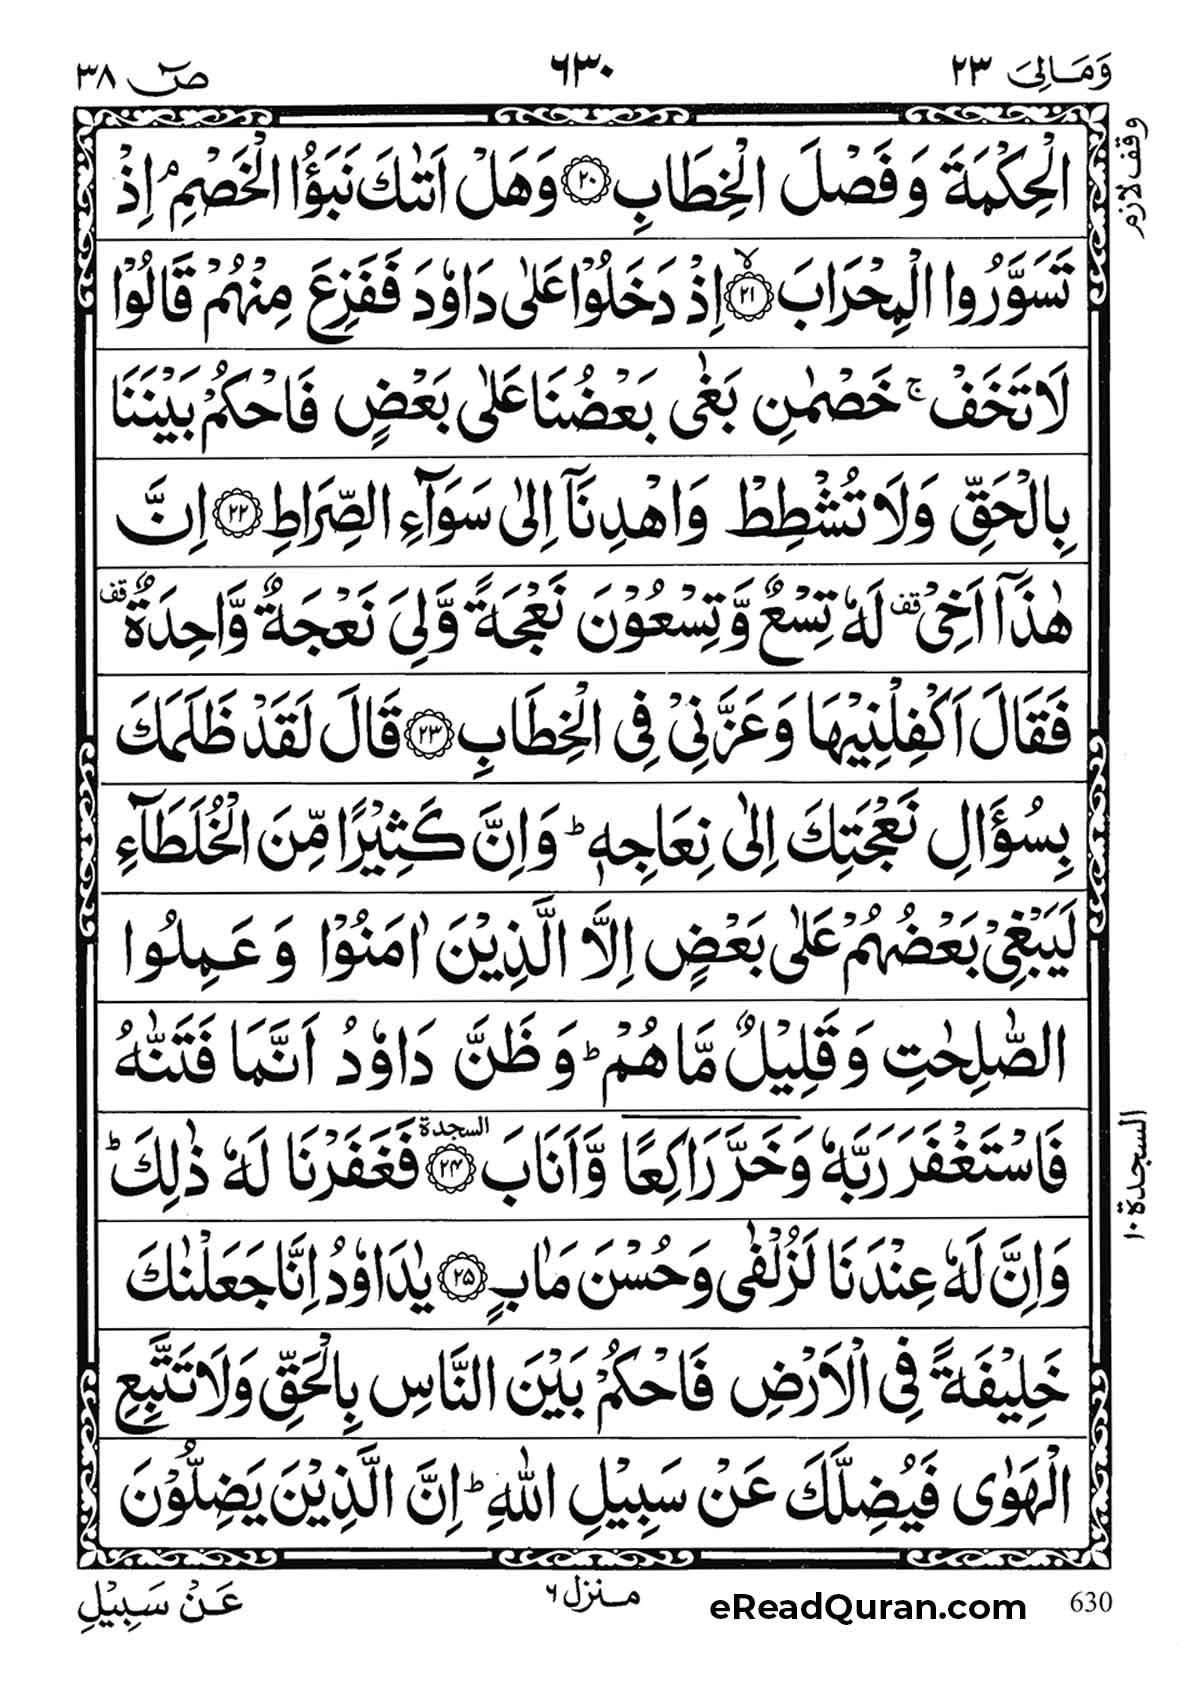 وَمَالِىَ ٢٣
٦٣٠
صٓ ٣٨
وقف لازم
الْحِكْمَةَ وَ فَصْلَ الْخِطَابِ ۝٢٠ وَهَلْ اَتٰىكَ نَبَؤُا الْخَصْمِ ۘ اِذْ
تَسَوَّرُوا الْمِحْرَابَ ۝٢١ ۙ اِذْ دَخَلُوْا عَلٰى دَاوٗدَ فَفَزِعَ مِنْهُمْ قَالُوْا
لَا تَخَفْ ۚ خَصْمٰنِ بَغٰى بَعْضُنَا عَلٰى بَعْضٍ فَاحْكُمْ بَيْنَنَا
بِالْحَقِّ وَلَا تُشْطِطْ وَاهْدِنَاۤ اِلٰى سَوَآءِ الصِّرَاطِ ۝٢٢ اِنَّ
هٰذَاۤ اَخِىْ قف لَهٗ تِسْعٌ وَّتِسْعُوْنَ نَعْجَةً وَّلِىَ نَعْجَةٌ وَّاحِدَةٌ قف
فَقَالَ اَكْفِلْنِيْهَا وَعَزَّنِىْ فِى الْخِطَابِ ۝٢٣ قَالَ لَقَدْ ظَلَمَكَ
بِسُؤَالِ نَعْجَتِكَ اِلٰى نِعَاجِهٖ ؕ وَاِنَّ كَثِيْرًا مِّنَ الْخُلَطَآءِ
لَيَبْغِىْ بَعْضُهُمْ عَلٰى بَعْضٍ اِلَّا الَّذِيْنَ اٰمَنُوْا وَ عَمِلُوا
الصّٰلِحٰتِ وَ قَلِيْلٌ مَّا هُمْ ؕ وَ ظَنَّ دَاوٗدُ اَنَّمَا فَتَنّٰهُ
فَاسْتَغْفَرَ رَبَّهٗ وَخَرَّ رَاكِعًا وَّاَنَابَ ۝٢٤ السجدة فَغَفَرْنَا لَهٗ ذٰلِكَ ؕ
السجدة ١٠
وَاِنَّ لَهٗ عِنْدَنَا لَزُلْفٰى وَحُسْنَ مَاٰبٍ ۝٢٥ يٰدَاوٗدُ اِنَّا جَعَلْنٰكَ
خَلِيْفَةً فِى الْاَرْضِ فَاحْكُمْ بَيْنَ النَّاسِ بِالْحَقِّ وَلَا تَتَّبِعِ
الْهَوٰى فَيُضِلَّكَ عَنْ سَبِيْلِ اللّٰهِ ؕ اِنَّ الَّذِيْنَ يَضِلُّوْنَ
630
eReadQuran.com
منزل ٦
عَنْ سَبِيْلِ